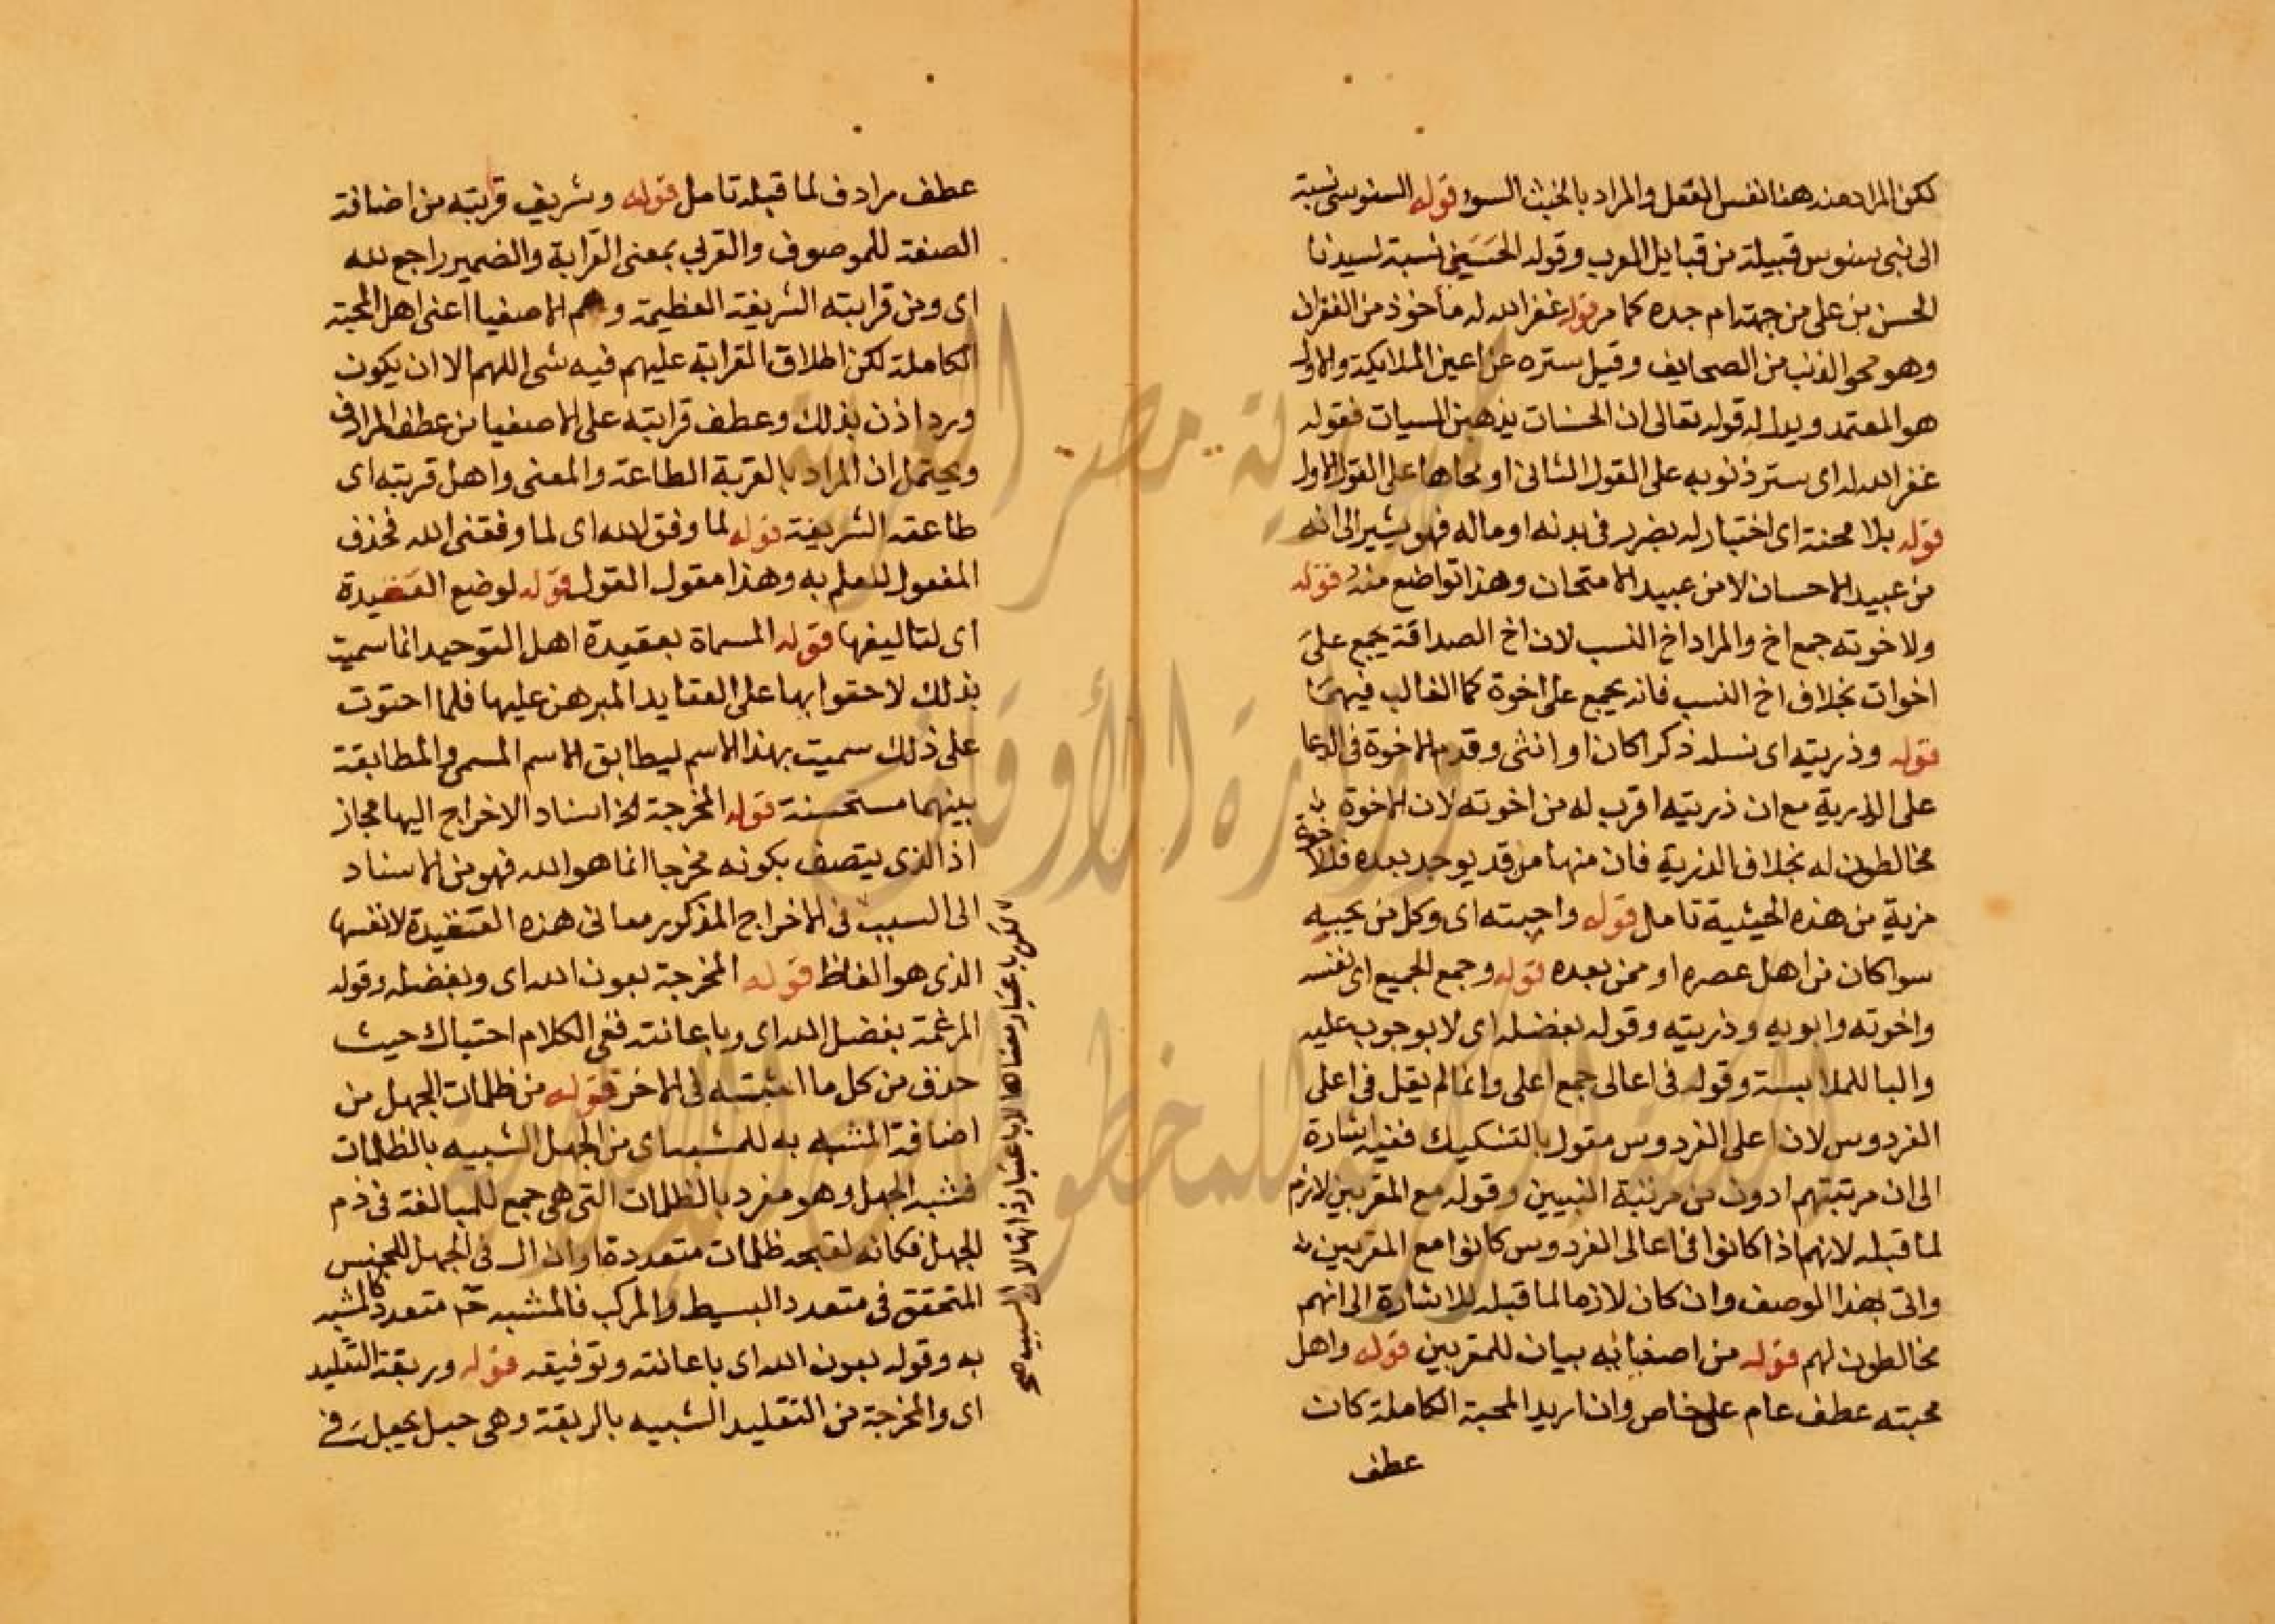 لكن المراد منه هنا نفس الفعل والمراد بالخبث السوء قوله السنوسي نسبة
الى بني سنوس قبيلة من قبايل المغرب وقوله الحَسَني نسبة لسيدنا
الحسن بن على من جهة ام جده كما مر قوله غفر الله له مأخوذ من الغفران
وهو محو الذنب من الصحايف وقيل ستره عن اعين الملايكة والاول
هو المعتمد ويدل له قوله تعالى ان الحسنات يذهبن السيات فقوله
غفر الله له اى ستر ذنوبه على القول الثانى او محاها على القول الاول
قوله بلا محنة اى اختبار له بضرر فى بدنه او ماله فهو يشير الى انه
من عبيد الاحسان لا من عبيد الامتحان وهذا تواضع منه قوله
ولاخوته جمع اخ والمراد اخ النسب لان اخ الصداقة يجمع على
اخوات بخلاف اخ النسب فانه يجمع على اخوة كما الغالب فيهما
قوله وذريته اى نسله ذكرا كان او انثى وقدم الاخوة فى الدعا
على الذرية مع ان ذريته اقرب له من اخوته لان الاخوة
مخالطون له بخلاف الذرية فان منها من قد يوجد بعده فللاخوة
مزية من هذه الحيثية تامل قوله واحبته اى وكل من يحبه
سوا كان من اهل عصره او ممن بعده قوله وجمع الجميع اى نفسه
واخوته وابويه وذريته وقوله بفضله اى لا بوجوب عليه
والبا للملابسة وقوله فى اعالى جمع اعلى وانما لم يقل فى اعلى
الفردوس لان اعلى الفردوس مقول بالتشكيك ففيه اشارة
الى ان مرتبتهم ادون من مرتبة النبيين وقوله مع المقربين لازم
لما قبله لانهم اذا كانوا فى اعالى الفردوس كانوا مع المقربين
واتى بهذا الوصف وان كان لازما لما قبله للاشارة الى انهم
مخالطون لهم قوله من اصفيائه بيان للمقربين قوله واهل
محبته عطف عام على خاص وان اريد المحبة الكاملة كان
عطف
عطف مرادف لما قبله تامل قوله وشريف قرابته من اضافة
الصفة للموصوف والقربى بمعنى القرابة والضمير راجع لله
اى ومن قرابته الشريفة العظيمة وهم الاصفيا اعنى اهل المحبة
الكاملة لكن اطلاق القرابة عليهم فيه شى اللهم الا ان يكون
ورد اذن بذلك وعطف قرابته على الاصفيا من عطف المرادف
ويحتمل ان المراد بالقربة الطاعة والمعنى واهل قربته اى
طاعته الشريفة قوله لما وفق الله اى لما وفقنى الله فحذف
المفعول للعلم به وهذا مقول القول قوله لوضع العقيدة
اى لتاليفها قوله المسماة بعقيدة اهل التوحيد انما سميت
بذلك لاحتوايها على العقايد المبرهن عليها فلما احتوت
على ذلك سميت بهذا الاسم ليطابق الاسم المسمى والمطابقة
بينهما مستحسنة قوله المخرجة الخ اسناد الاخراج اليها مجاز
اذ الذى يتصف بكونه مخرجا انما هو الله فهو من الاسناد
الى السبب فى الاخراج المذكور معانى هذه العقيدة لا نفسها
الذى هو الفاظ قوله المخرجة بعون الله اى وبفضله وقوله
المرغمة بفضل الله اى وباعانته ففى الكلام احتباك حيث
حذف من كل ما اثبته فى الاخر قوله من ظلمات الجهل من
اضافة المشبه به للمشبه اى من الجهل الشبيه بالظلمات
فشبه الجهل وهو مفرد بالظلمات التى هى جمع للمبالغة فى ذم
الجهل فكانه لقبحه ظلمات متعددة او ان ال فى الجهل للجنس
المتحقق فى متعدد البسيط والمركب فالمشبه ح متعدد كالمشبه
به وقوله بعون الله اى باعانته وتوفيقه قوله وربقة التقليد
اى والمخرجة من التقليد الشبيه بالربقة وهى حبل يجعل فى
لكن باعتبار معناها لا باعتبار ذاتها لان السبب صح
جمهورية مصر العربية
وزارة الأوقاف